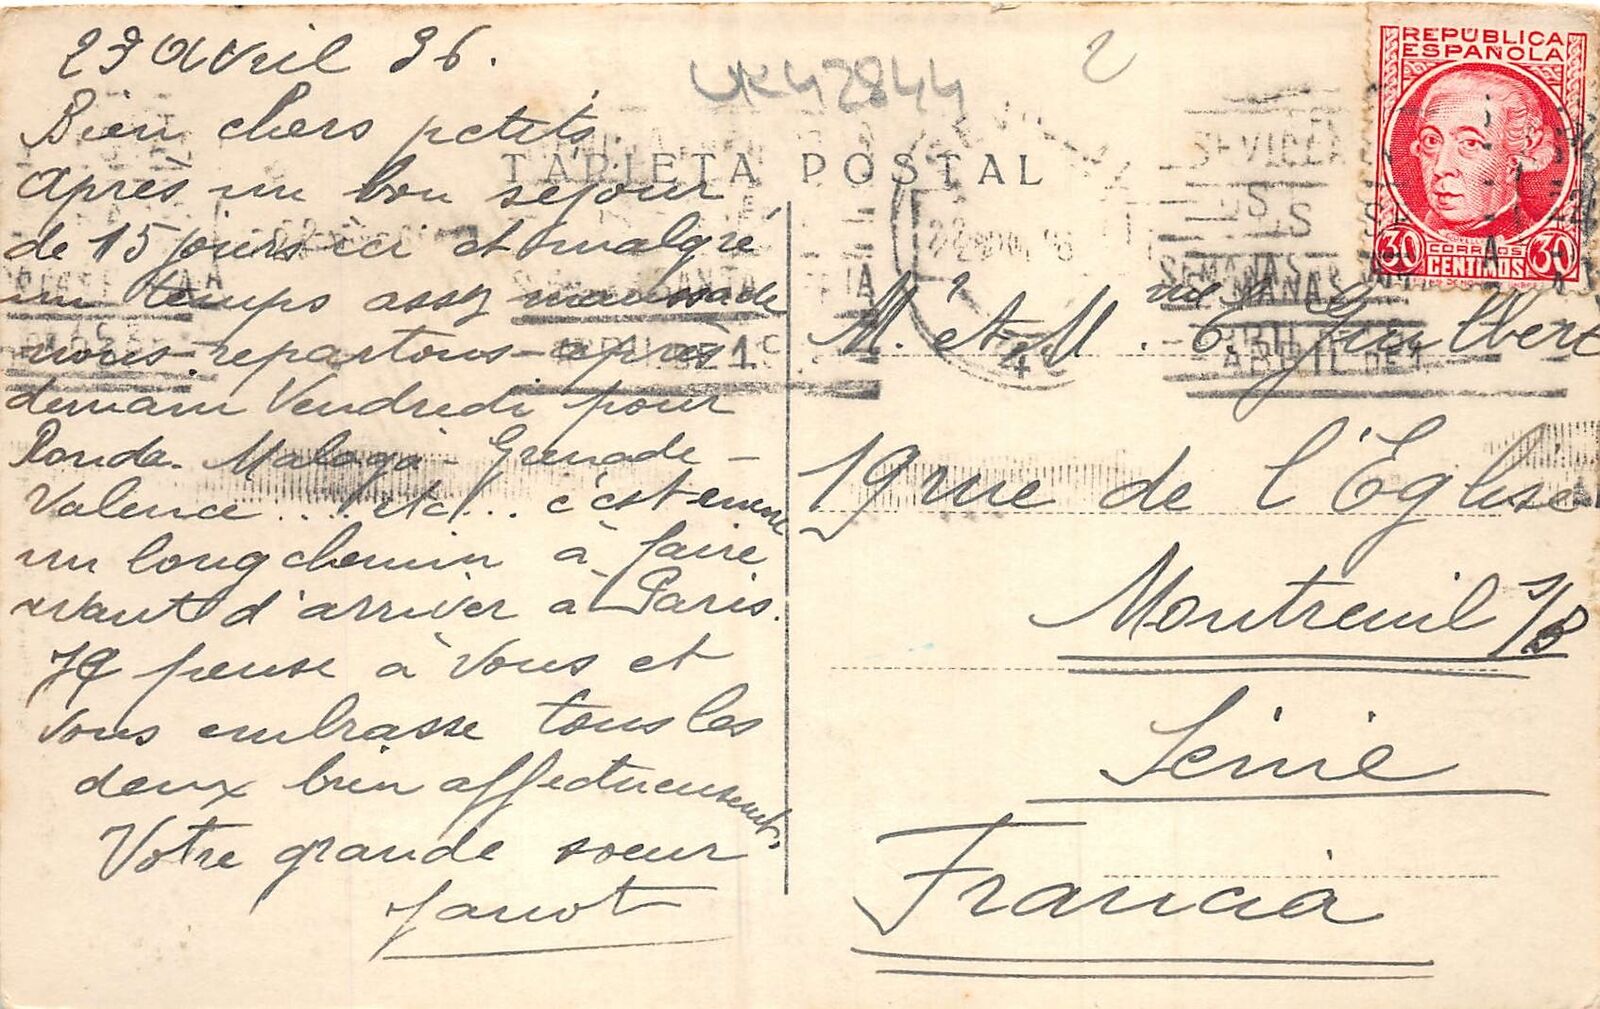 23 Avril 36.
UK42844
2
REPÚBLICA
ESPAÑOLA
30 CORREOS 30
CENTIMOS
TARJETA POSTAL
Bien chers petits
Après un bon séjour
de 15 jours ici et malgré
un temps assez maussade
nous repartons après
demain Vendredi pour
Ronda. Malaga - Grenade -
Valence ... etc ... c'est encore
un long chemin à faire
avant d'arriver à Paris.
Je pense à vous et
vous embrasse tous les
deux bien affectueusement.
Votre grande soeur
Janot
SEMANAS
ABRIL DE 1
M. et Mme Guilbert
19 rue de l'Eglise
Montreuil s/B
Seine
Francia